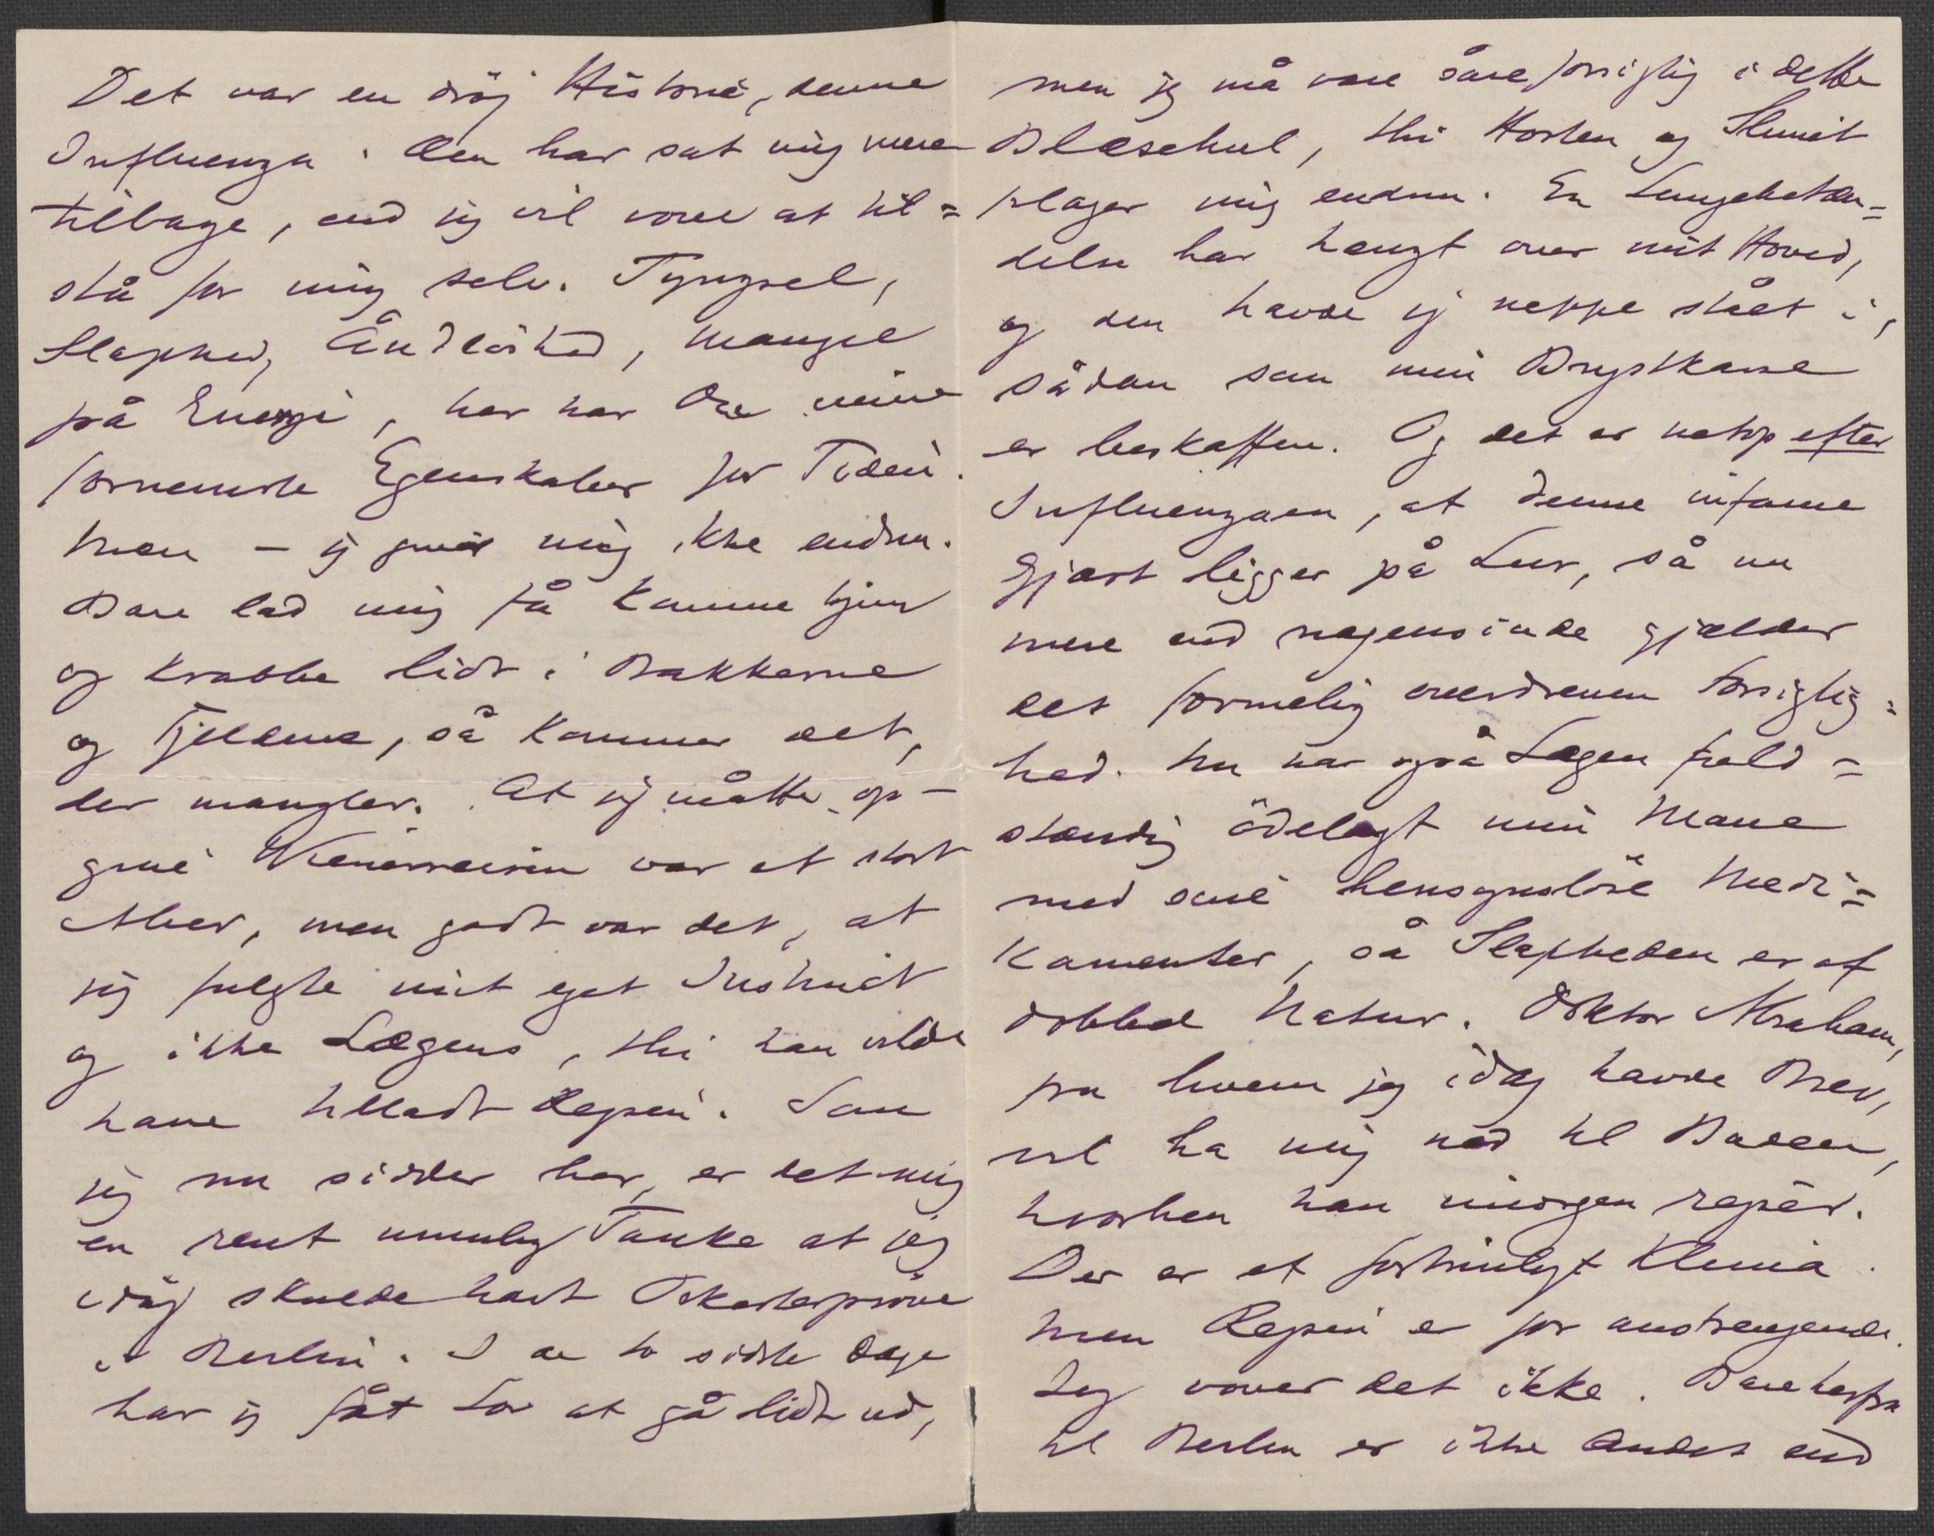 Det var en drøj Historie, denne
Influenza. Den har sat mig mere
tilbage, end jeg vil vove at til=
stå for mig selv. Tyngsel,
Slaphed, Åndløshed, Mangel
på Energi, her har De mine
fornemste Egenskaber for Tiden.
Men – jeg giver mig ikke endnu.
Bare lad mig få komme hjem
og krabbe lidt i Bakkerne
og Fjeldene, så kommer det,
der mangler. At jeg måtte op-
give Wienerreisen var et stort
Aber, men godt var det, at
jeg fulgte mit eget Instinct
og ikke Lægens, thi han vilde
have tilladt Rejsen. Som
jeg nu sidder her, er det mig
en rent umulig Tanke at jeg
idag skulde havt Orkesterprøve
i Berlin. I de to sidste Dage
har jeg fåt Lov at gå lidt ud,
men jeg må være såre forsigtig i dette
Blæsehul, thi Hosten og Slimet
plager mig endnu. En Lungebetæn=
delse har hængt over mit Hoved,
og den havde jeg neppe stået i,
sådan som min Brystkasse
er beskaffen. Og det er netop efter
Influenzaen, at denne infame
Gjæst ligger på Lur, så nu
mere end nogensinde gjælder
det formelig overdreven Forsigtig=
hed. Nu har også Lægen fuld=
stændig ødelagt min Mave
med sine hensynsløse Medi=
kamenter, så Slapheden er af
dobbel Natur. Doktor Abraham,
fra hvem jeg idag havde Brev,
vil ha mig ned til Baden,
hvorhen han imorgen rejser.
Der er et fortrinligt Klima.
Men Rejsen er for anstrengende.
Jeg vover det ikke. Bare herfra
til Berlin er ikke Andet end